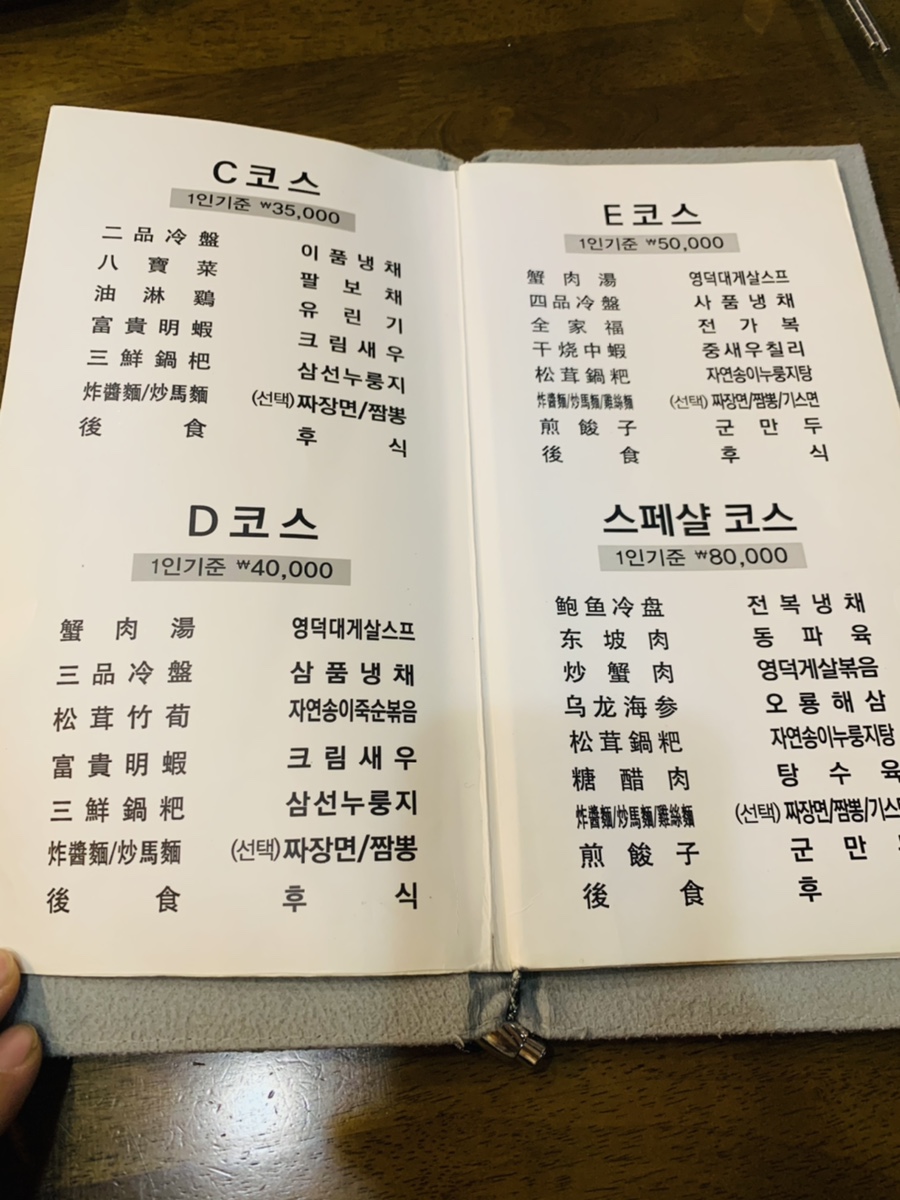 C코스
1인기준 ₩35,000
二品冷盤 이품냉채
八寶菜 팔보채
油淋鷄 유린기
富貴明蝦 크림새우
三鮮鍋粑 삼선누룽지
炸醬麵/炒馬麵 (선택)짜장면/짬뽕
後食 후식
D코스
1인기준 ₩40,000
蟹肉湯 영덕대게살스프
三品冷盤 삼품냉채
松茸竹荀 자연송이죽순볶음
富貴明蝦 크림새우
三鮮鍋粑 삼선누룽지
炸醬麵/炒馬麵 (선택)짜장면/짬뽕
後食 후식
E코스
1인기준 ₩50,000
蟹肉湯 영덕대게살스프
四品冷盤 사품냉채
全家福 전가복
干烧中蝦 중새우칠리
松茸鍋粑 자연송이누룽지탕
炸醬麵/炒馬麵/雞絲麵 (선택)짜장면/짬뽕/기스면
煎餕子 군만두
後食 후식
스페샬 코스
1인기준 ₩80,000
鲍鱼冷盘 전복냉채
东坡肉 동파육
炒蟹肉 영덕게살볶음
乌龙海参 오룡해삼
松茸鍋粑 자연송이누룽지탕
糖醋肉 탕수육
炸醬麵/炒馬麵/雞絲麵 (선택)짜장면/짬뽕/기스
煎餕子 군만
後食 후